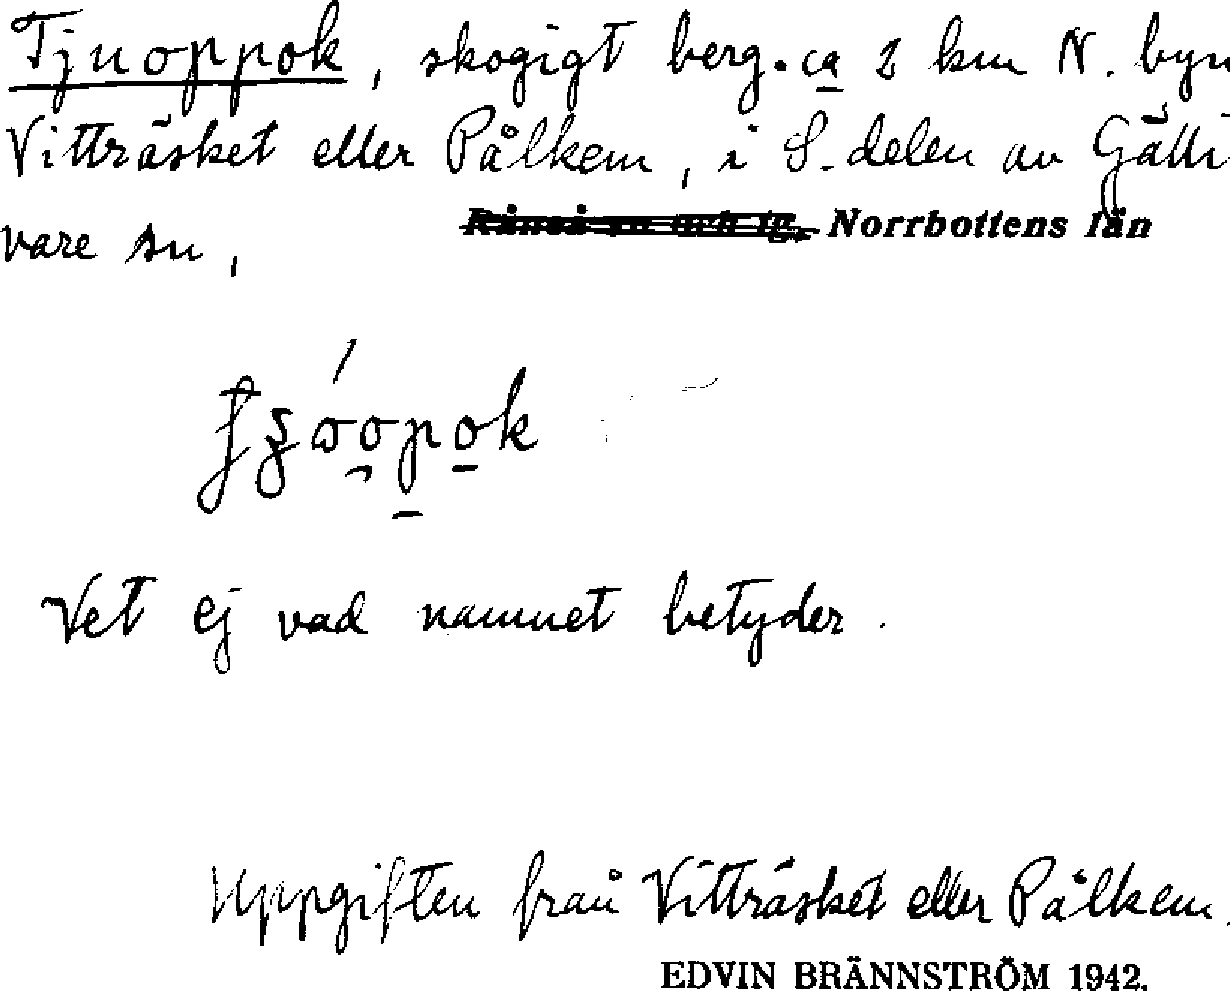 Tjuoppok, skogigt berg. ca 2 km N. byn
Vitträsket eller Pålkem, i S. delen av Gälli-
vare sn, Norrbottens län
Vet ej vad namnet betyder.
Uppgiften från Vitträsket eller Pålkem.
EDVIN BRÄNNSTRÖM 1942.